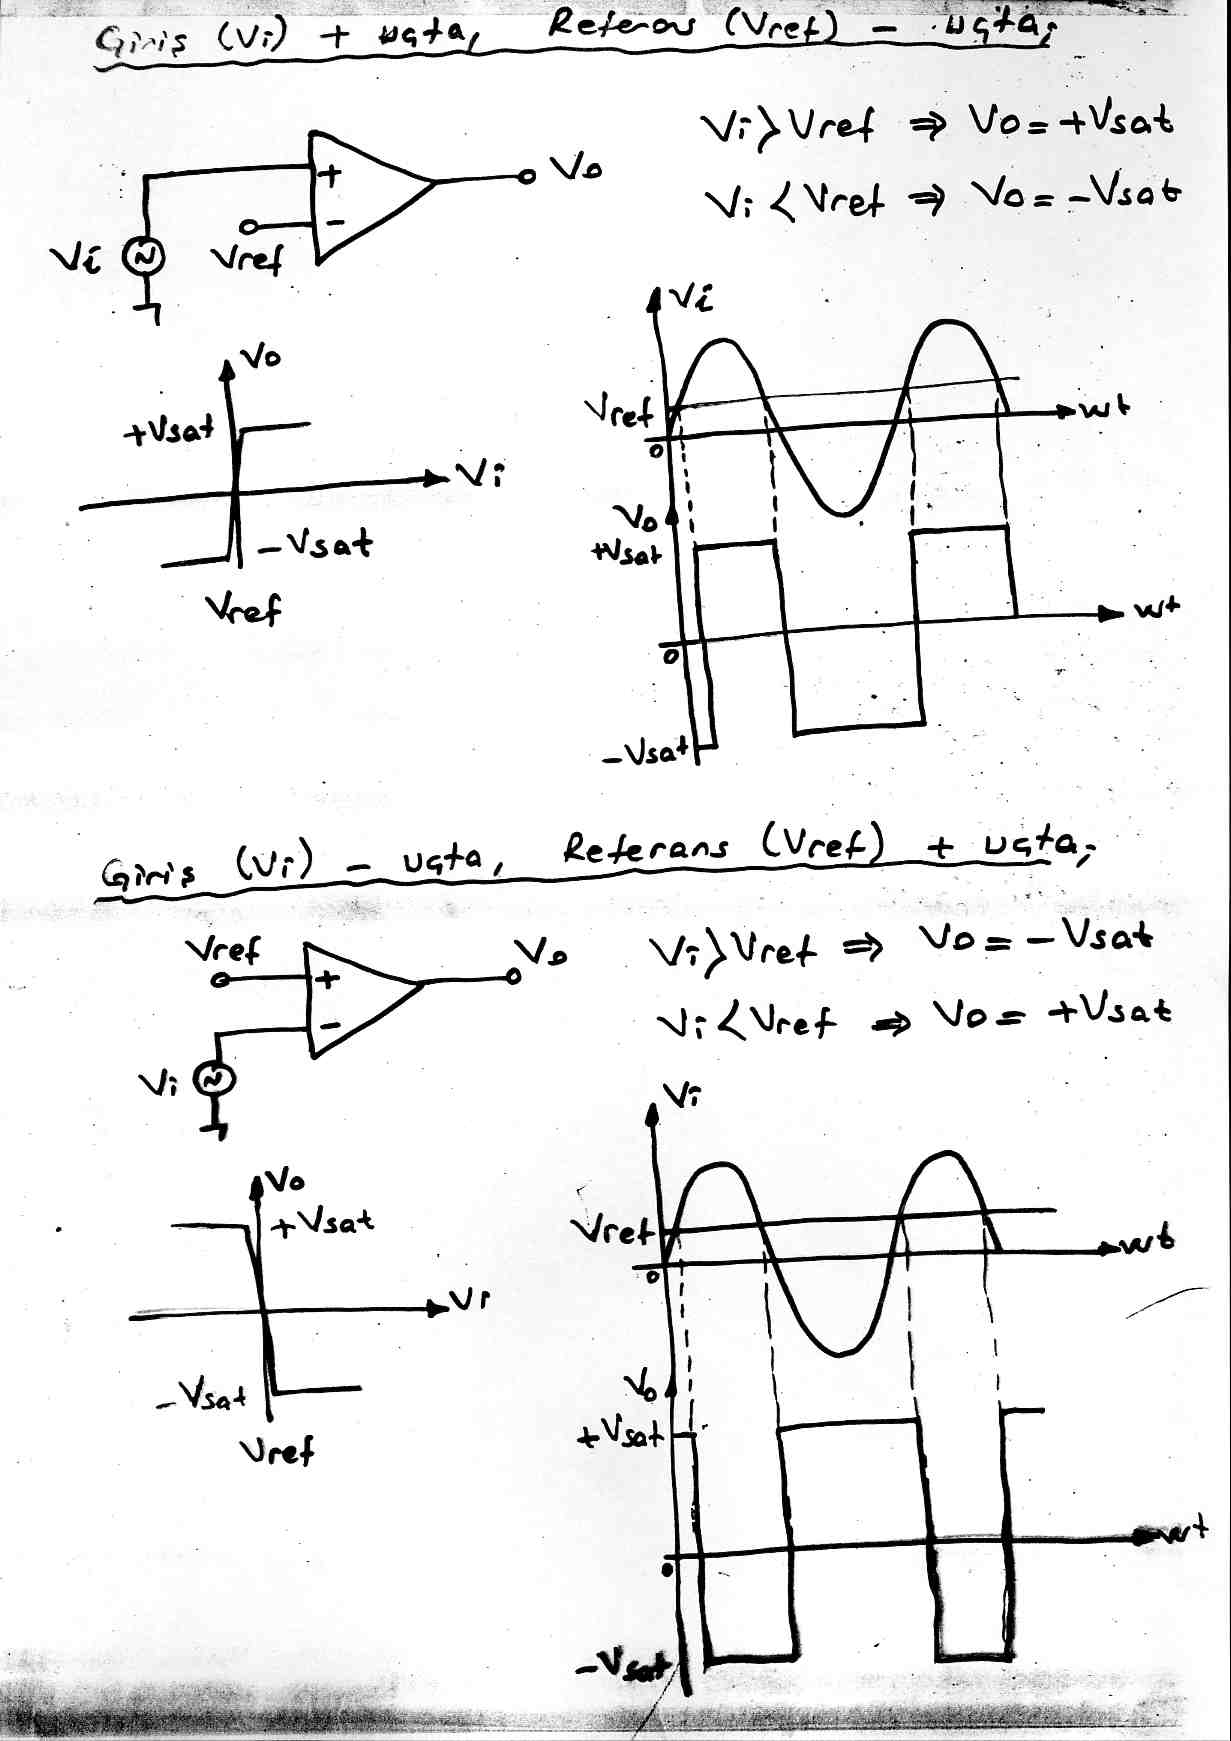 Giriş (Vi) + uçta, Referans (Vref) - uçta;
Vi > Vref ⇒ Vo = +Vsat
Vi < Vref ⇒ Vo = -Vsat
+
-
Vo
Vi
Vref
Vo
+Vsat
Vi
-Vsat
Vref
Vi
Vref
wt
0
Vo
+Vsat
wt
0
-Vsat
Giriş (Vi) - uçta, Referans (Vref) + uçta;
Vref
+
-
Vo
Vi
Vi > Vref ⇒ Vo = -Vsat
Vi < Vref ⇒ Vo = +Vsat
Vo
+Vsat
Vi
-Vsat
Vref
Vi
Vref
wt
0
Vo
+Vsat
wt
0
-Vsat